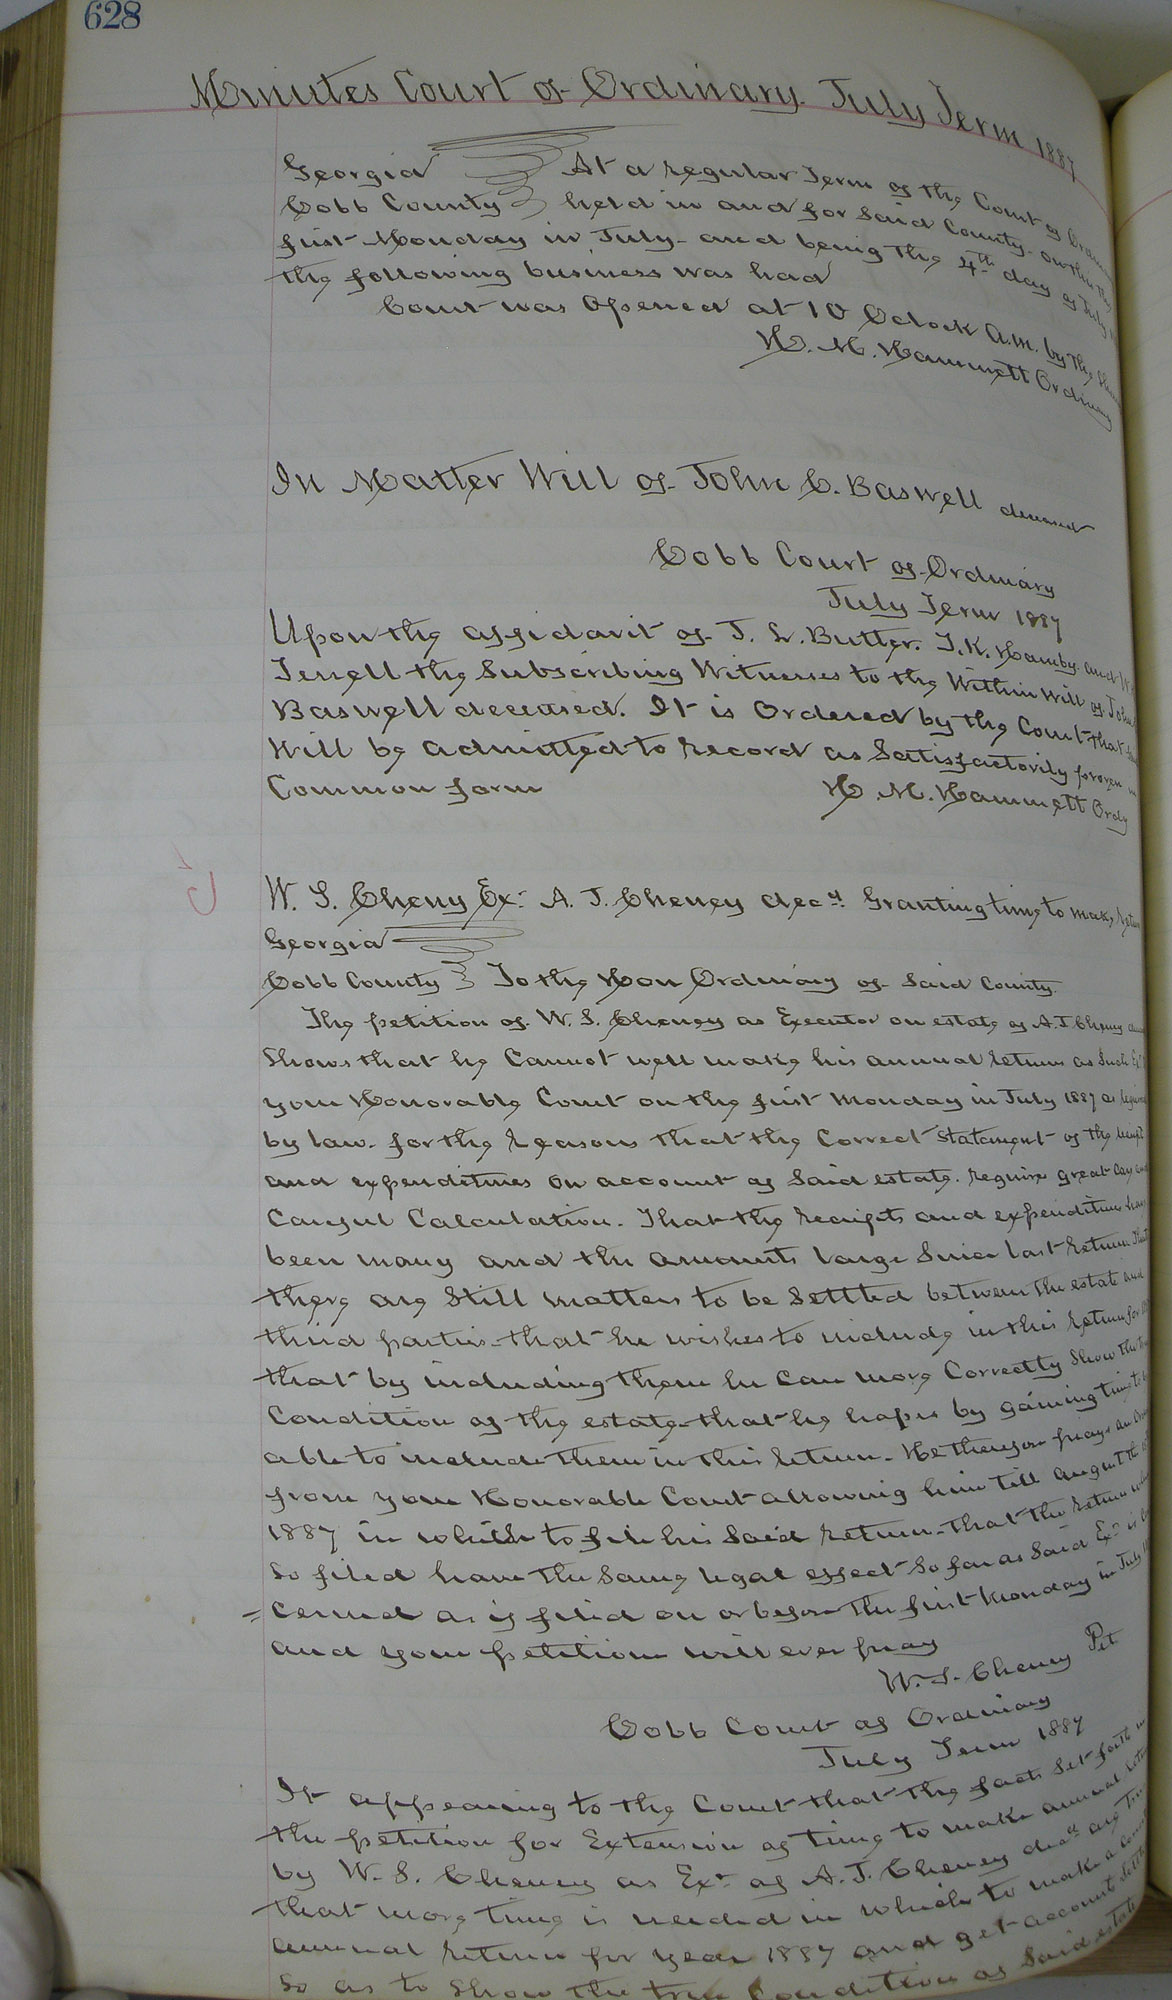 628
Minutes Court of Ordinary. July Term 1887
Georgia At a regular Term of the Court of
Cobb County held in and for said County. on this the
first Monday in July and being the 4th day of July
the following business was had
Court was Opened at 10 Oclock A.m. by the
H. M. Hammett Ordinary
In Matter Will of John C. Baswell deceased
Cobb Court of Ordinary
July Term 1887
Upon the affidavit of J. L. Butler. T. K. Hamby and W
Terrell the Subscribing Witnesses to the Within Will of John
Baswell deceased. It is Ordered by the Court that
Will be admitted to record as Satisfactorily proven in
Common form H. M. Hammett Ordy
W. S. Cheny Exr A. J. Cheney decd. Granting time to make
Georgia
Cobb County To the Hon Ordinary of Said County.
The petition of W. S. Cheney as Executor on estate of A. J. Cheney
Shows that he Cannot well make his annual return as Such
your Honorable Court on the first Monday in July 1887 as
by law. for the reasons that the Correct Statement of the
and expenditures on account of Said estate. require great Cay and
Careful Calculation. That the receipts and expenditures have
been many and the amounts large Since last return That
there are Still matters to be Settled between the estate and
third parties that he wishes to include in this return for
that by including them he can more Correctly Show the
Condition of the estate that he hopes by gaining time to be
able to include them in this return. He therefore prays an
from your Honorable Court allowing him till August the
1887 in which to file his Said return. that the return
So filed have the Same legal effect So far as Said Exr is
=cerned as if filed on or before the first Monday in July
and your petition will ever pray
W. S. Cheney Pet
Cobb Court of Ordinary
July Term 1887
It appearing to the Court that the facts Set forth in
the petition for Extension of time to make annual
by W. S. Cheney as Exr of A. J. Cheney decd are
that more time is needed in which to make a
annual return for year 1887 and get account
So as to Show the true Condition of Said estate